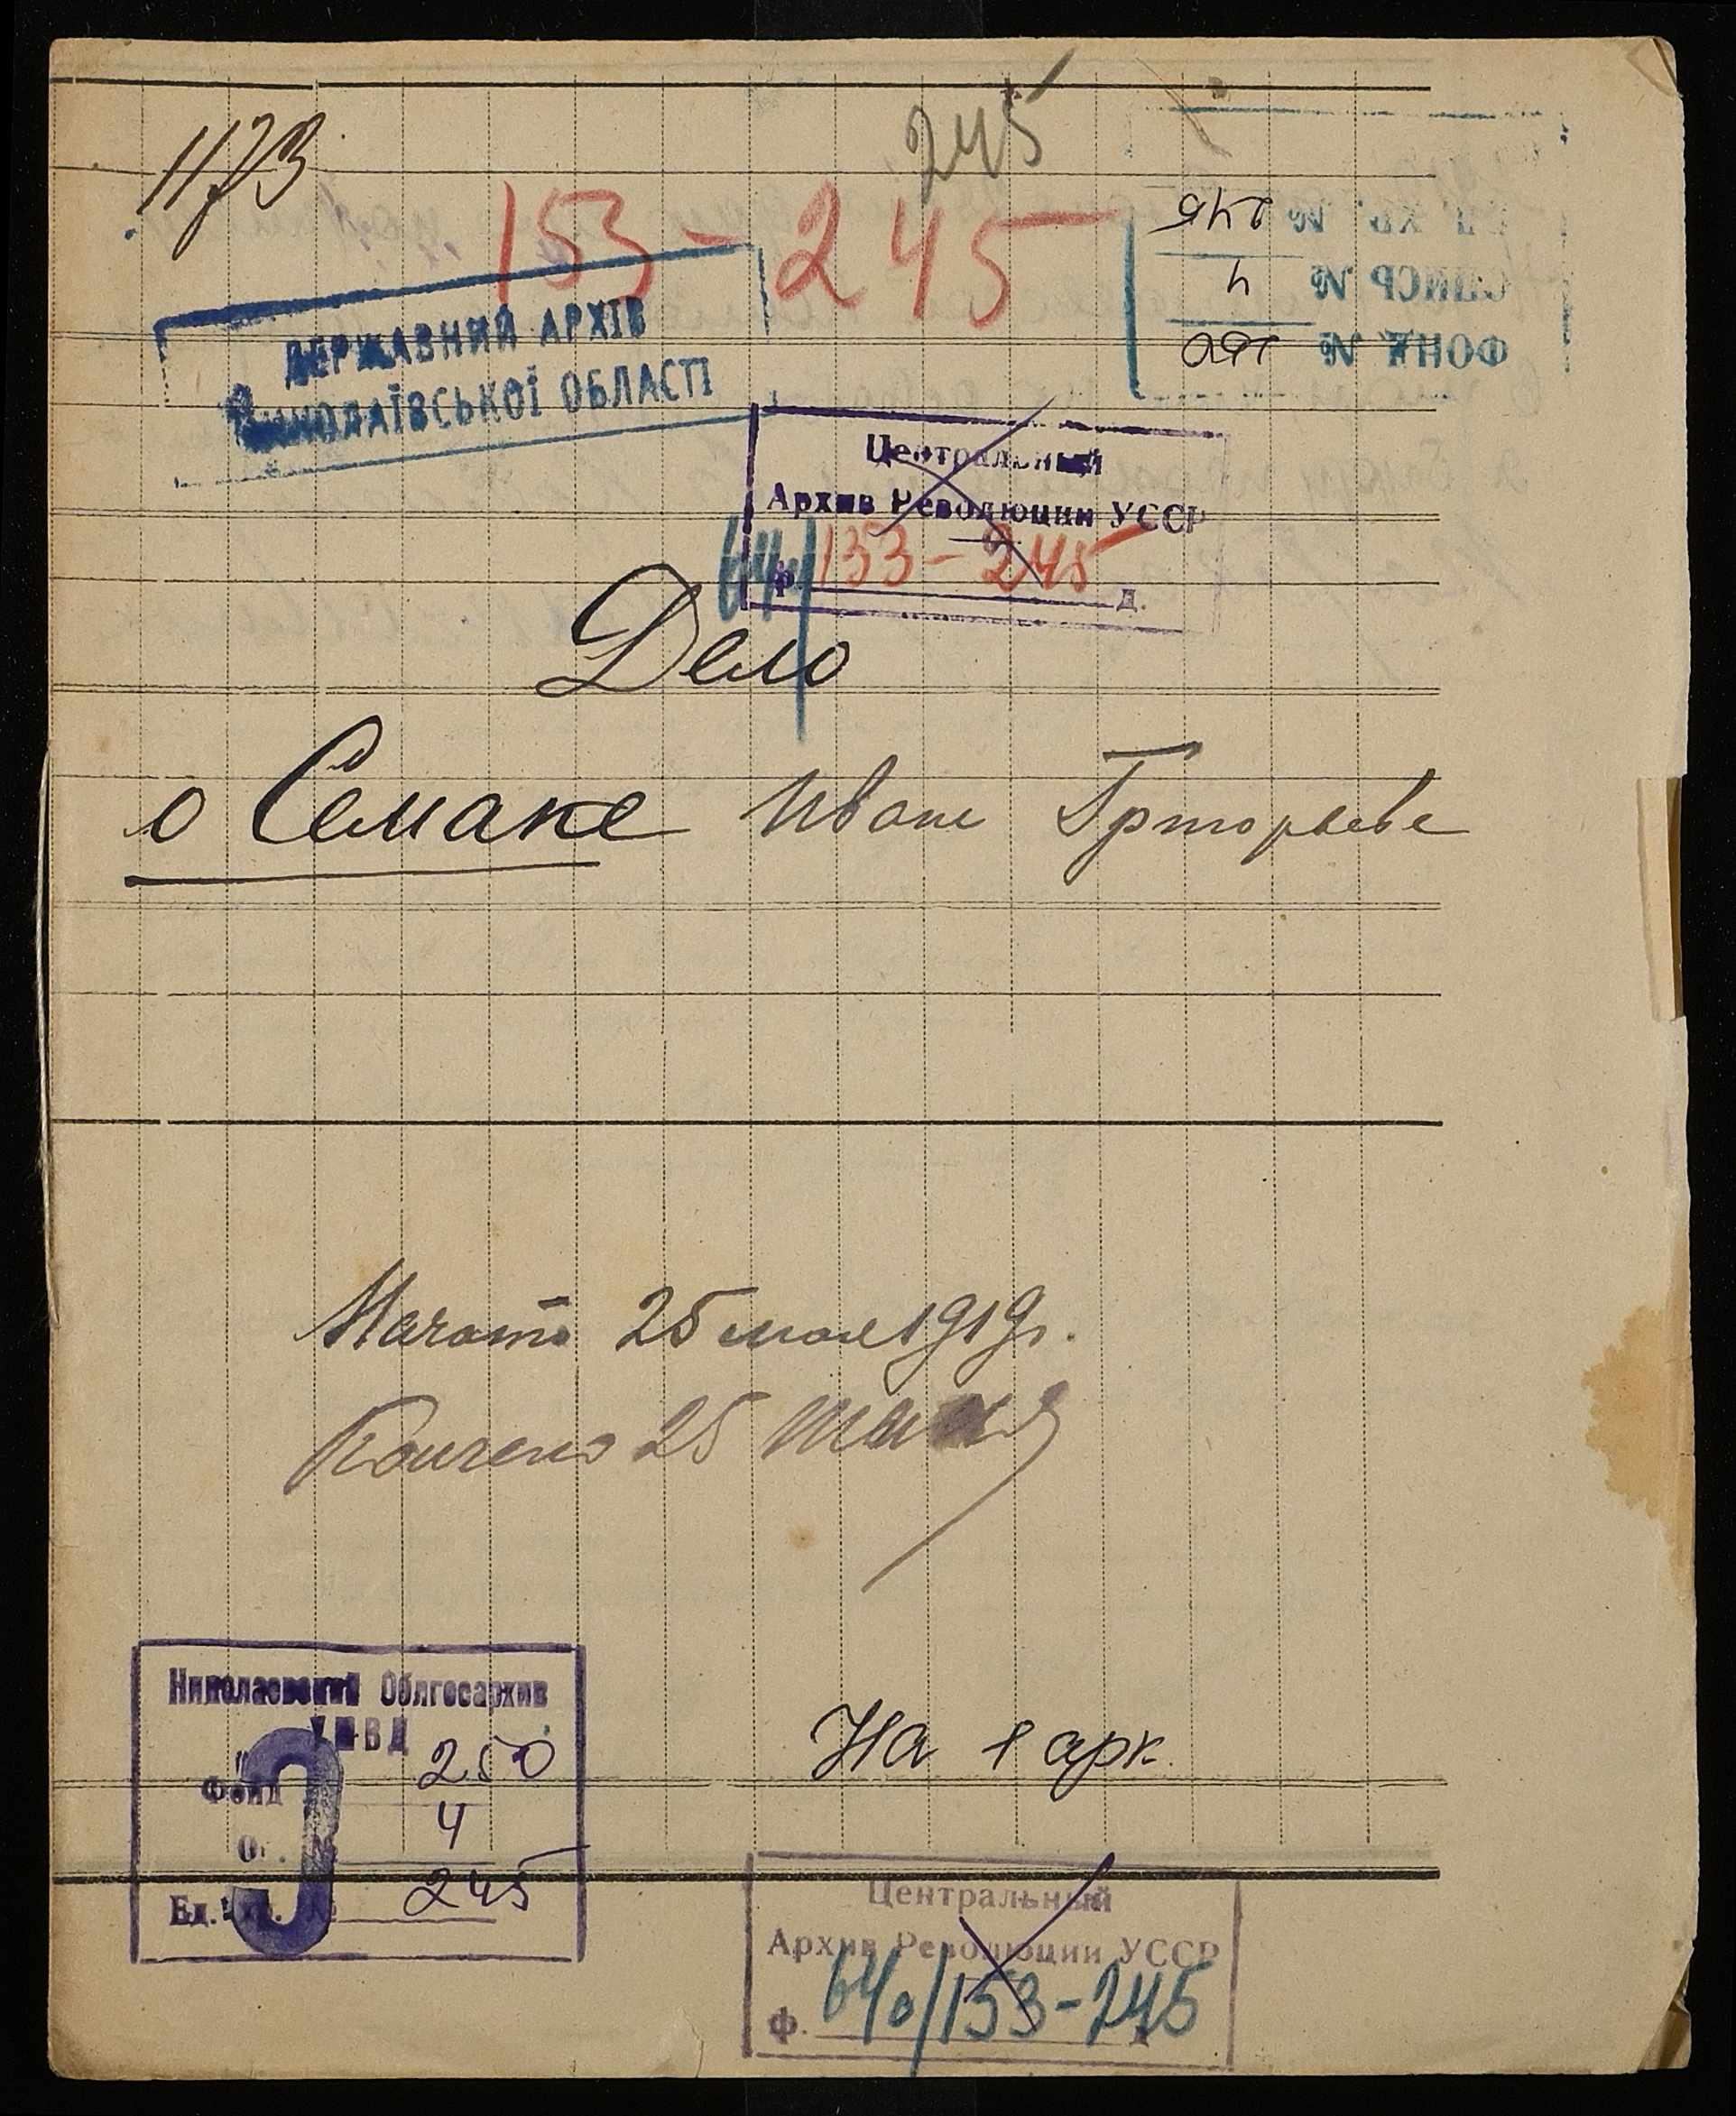 1173
245
153-245
ДЕРЖАВНИЙ АРХІВ
МИКОЛАЇВСЬКОЇ ОБЛАСТІ
ЕД. ХР. № 245
ОПИСЬ № 4
ФОНД №
Центральный
Архив Революции УССР
ф. 153-245 д.
Дело
о Семаке Иване Григорьеве
Начато 25 мая 1919 г.
Кончено 25
Николаевский Облгосархив
УМВД
Фонд № 250
Оп. № 4
Ед. хр. № 245
На арк.
Центральный
Архив Революции УССР
ф. 640/153-245